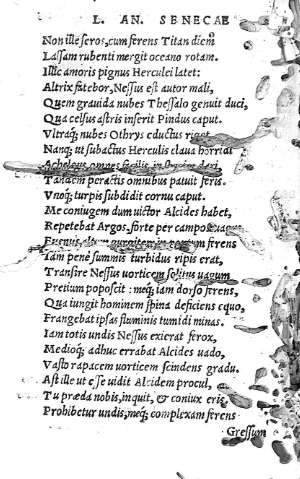 L. AN. SENECAE
Non ille seros, cum ferens Titan diem
Lassam rubenti mergit oceano rotam.
Illic amoris pignus Herculei latet:
Altrix fatebor, Nessus est autor mali,
Quem grauida nubes Thessalo genuit duci,
Qua celsus astris inserit Pindus caput.
Vltraq; nubes Othrys eductus riget
Nanq; ut subactus Herculis claua horridi
Achelous omnes facilis in species dari
Tandem peractis omnibus patuit feris.
Vnoq; turpis subdidit cornu caput.
Me coniugem dum uictor Alcides habet,
Repetebat Argos, forte per campos uagus
Euenus, altum gurgitem in pontum ferens
Iam penè summis turbidus ripis erat,
Transire Nessus uorticem solitus uagum
Pretium poposcit: meq; iam dorso ferens,
Qua iungit hominem spina deficiens equo,
Frangebat ipsas fluminis tumidi minas.
Iam totis undis Nessus exierat ferox,
Medioq; adhuc errabat Alcides uado,
Vasto rapacem uorticem scindens gradu.
Ast ille ut esse uidit Alcidem procul,
Tu præda nobis, inquit, & coniux eris
Prohibetur undis, meq; complexam ferens
Gressum